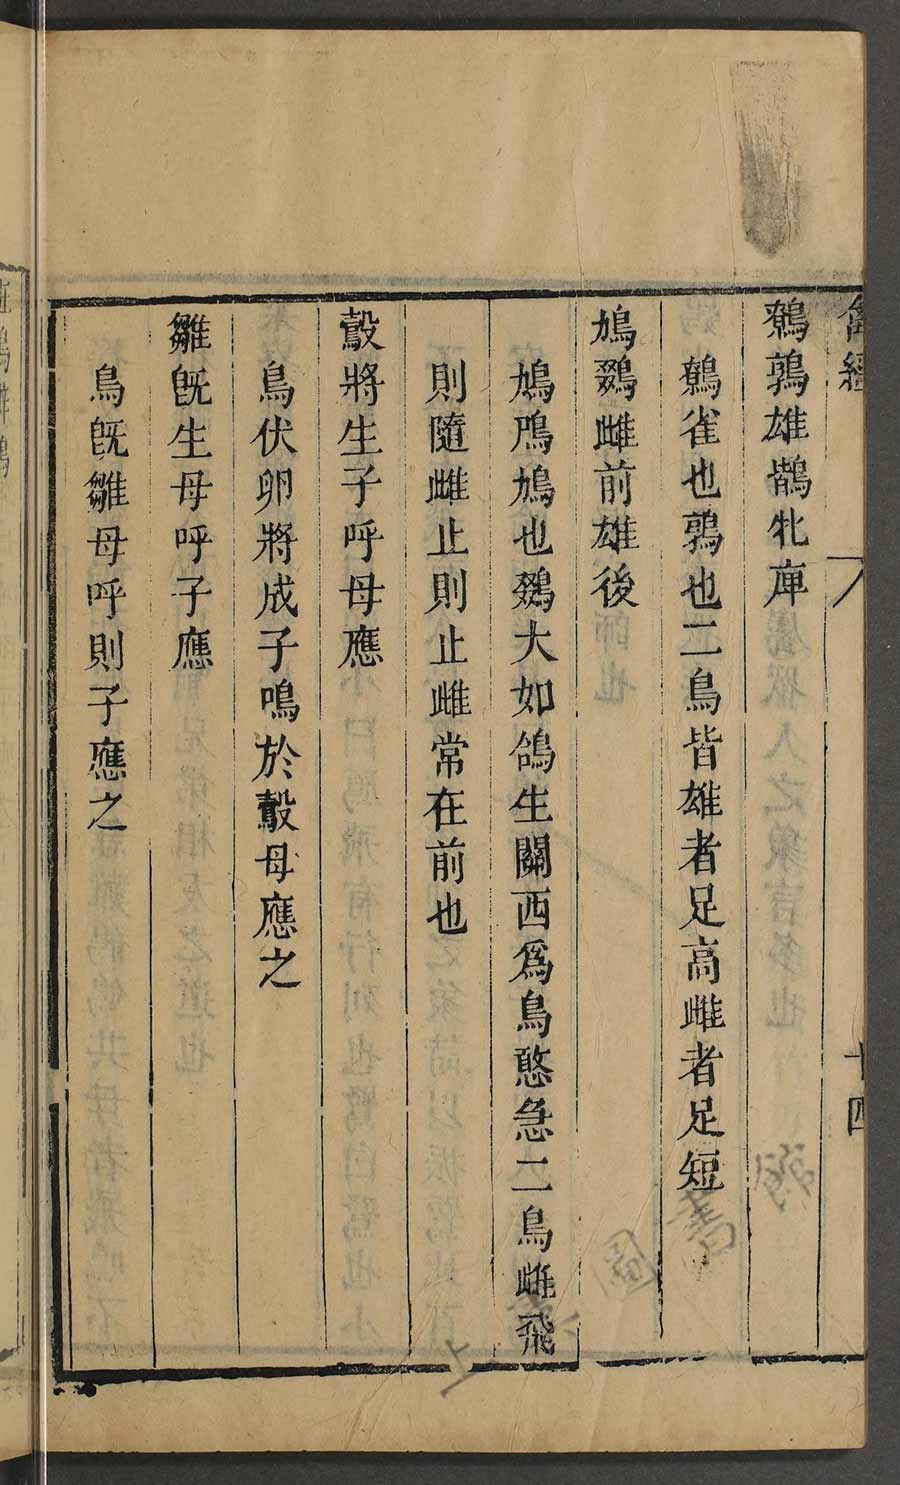 禽經
十四
鷯鶉雄鶄牝庳
鷯雀也鶉也二鳥皆雄者足高雌者足短
鳩鷚雌前雄後
鳩鳲鳩也鷚大如鴿生關西爲鳥憨急二鳥雌飛
則隨雌止則止雌常在前也
鷇將生子呼母應
鳥伏卵將成子鳴於鷇母應之
雛旣生母呼子應
鳥旣雛母呼則子應之